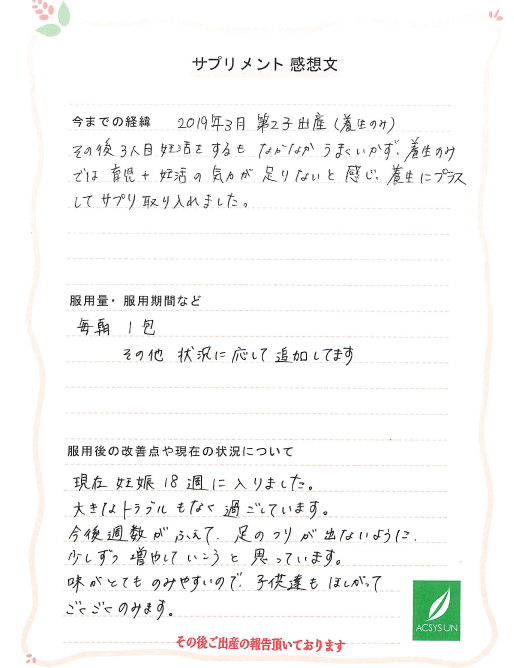 サプリメント 感想文
今までの経緯 2019年3月 第2子出産(養生のみ)
その後3人目妊活をするも なかなかうまくいかず、養生のみ
では 育児+妊活の気力が足りないと感じ、養生にプラス
してサプリ取り入れました。
服用量・服用期間など
毎朝 1包
その他 状況に応じて追加してます
服用後の改善点や現在の状況について
現在妊娠18週に入りました。
大きなトラブルもなく過ごしています。
今後週数がふえて、足のつりが出ないように、
少しずつ増やしていこうと思っています。
味がとてものみやすいので、子供達もほしがって
ごくごくのみます。
ACSYSUN
その後ご出産の報告頂いております